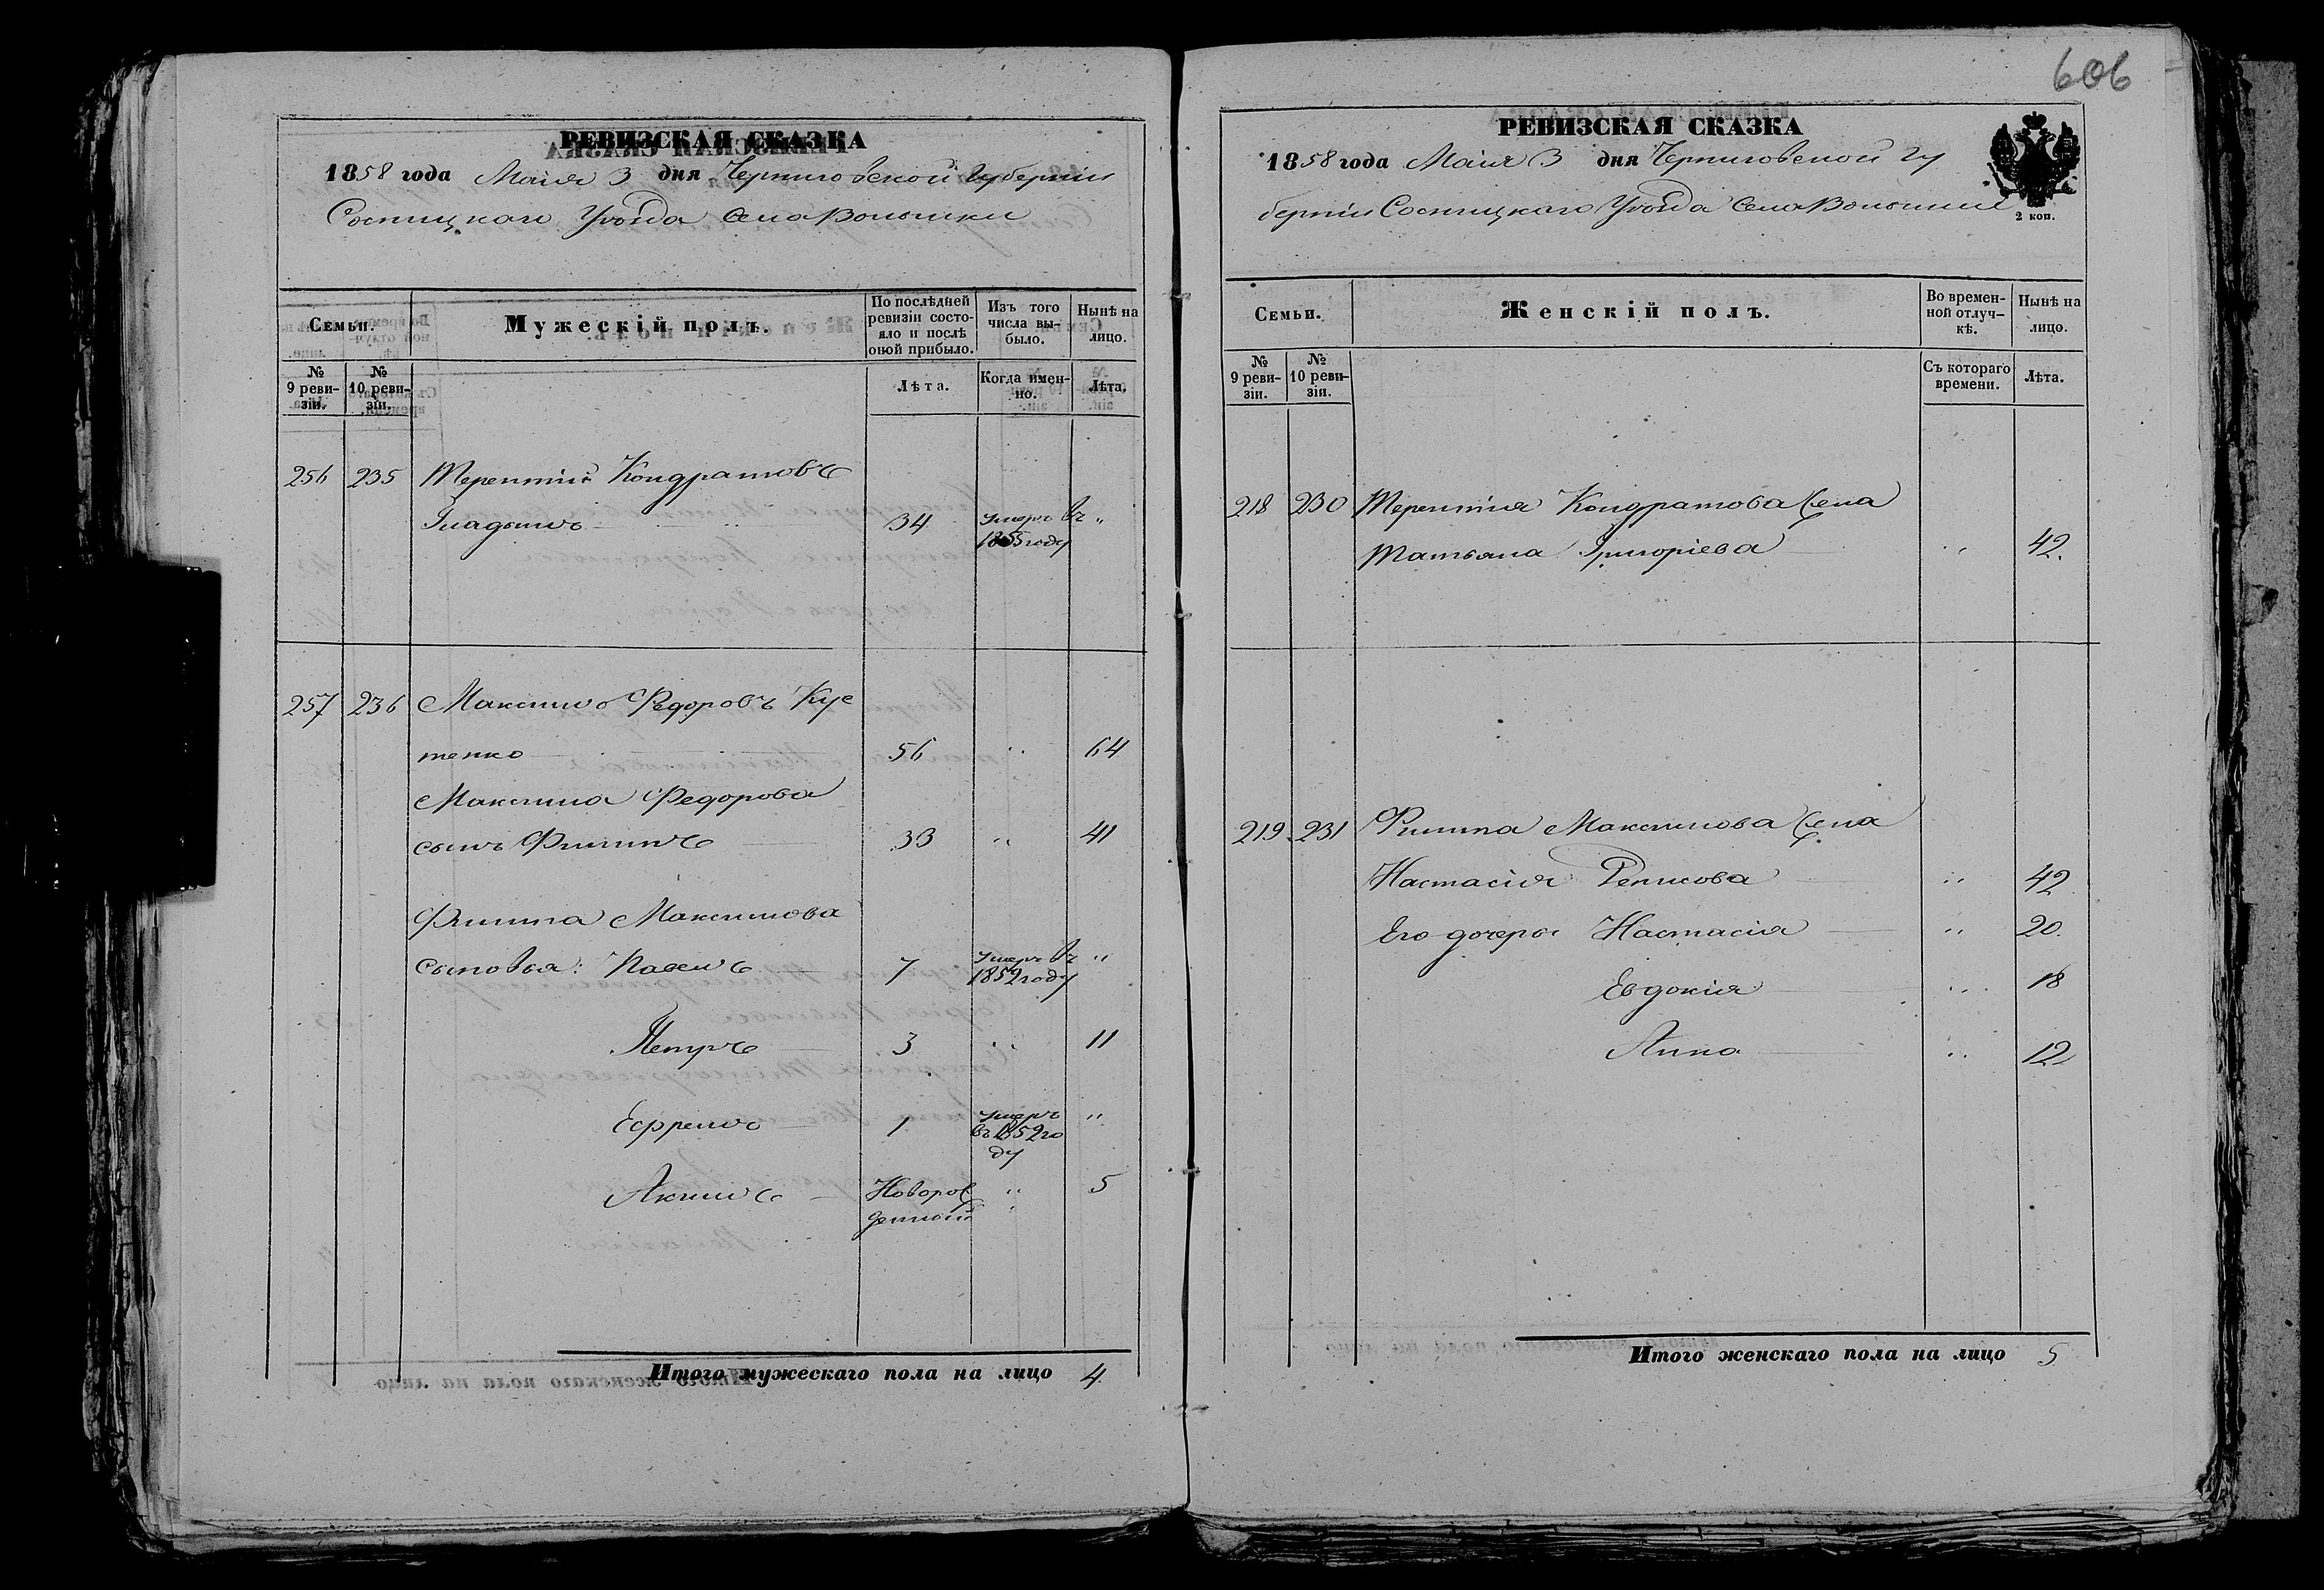 606
РЕВИЗСКАЯ СКАЗКА
1858 года Маія 3 дня Черниговской Губерніи
Сосницкаго Уѣзда Села Волынки
Семьи.
Мужескій полъ.
По послѣдней ревизіи состояло и послѣ оной прибыло.
Изъ того числа выбыло.
Нынѣ на лицо.
№ 9 ревизіи.
№ 10 ревизіи.
Лѣта.
Когда именно.
Лѣта.
256 235 Терентій Кондратовъ
Гладышъ 34 умеръ въ "
1855 году
257 236 Максимъ Федоровъ Кус
тенко 56 " 64
Максима Федорова
сынъ Филипъ 33 " 41
Филипа Максимова
Сыновья: Павелъ 7 умеръ въ "
1852 году
Петръ 3 " 11
Ефремъ 1 умеръ "
въ 1852 го
ду
Акимъ Новорож " 5
денный
Итого мужескаго пола на лицо 4
РЕВИЗСКАЯ СКАЗКА
1858 года Маія 3 дня Черниговской Гу
берніи Сосницкаго Уѣзда Села Волынки
2 коп.
Семьи.
Женскій полъ.
Во временной отлучкѣ.
Нынѣ на лицо.
№ 9 ревизіи.
№ 10 ревизіи.
Съ котораго времени.
Лѣта.
218 230 Терентія Кондратова жена
Татьяна Григоріева " 42.
219 231 Филипа Максимова жена
Настасія Денисова " 42
Его дочери Настасія " 20.
Евдокія " 18
Анна " 12
Итого женскаго пола на лицо 5